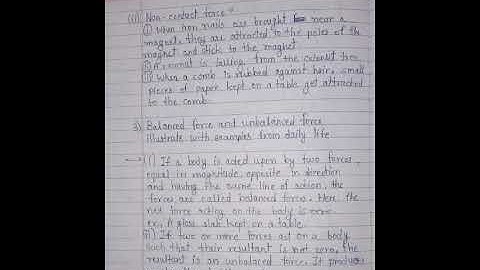 (ii) Non-conduct force
(i) When iron nails are brought near a
magnet, they are attracted to the poles of the
magnet and stick to the magnet
(ii) A coconut is falling from the coconut tree.
(iii) When a comb is rubbed against hair, small
pieces of paper kept on a table get attracted
to the comb.
3) Balanced force and unbalanced force
illustrate with examples from daily life.
→ (i) If a body is acted upon by two forces,
equal in magnitude, opposite in direction
and having the same line of action, the
forces are called balanced force. Here, the
net force acting on the body is zero
ex. A glass slab kept on a table.
ii) If two or more forces act on a body,
such that their resultant is not zero, the
resultant is an unbalanced force. It produces